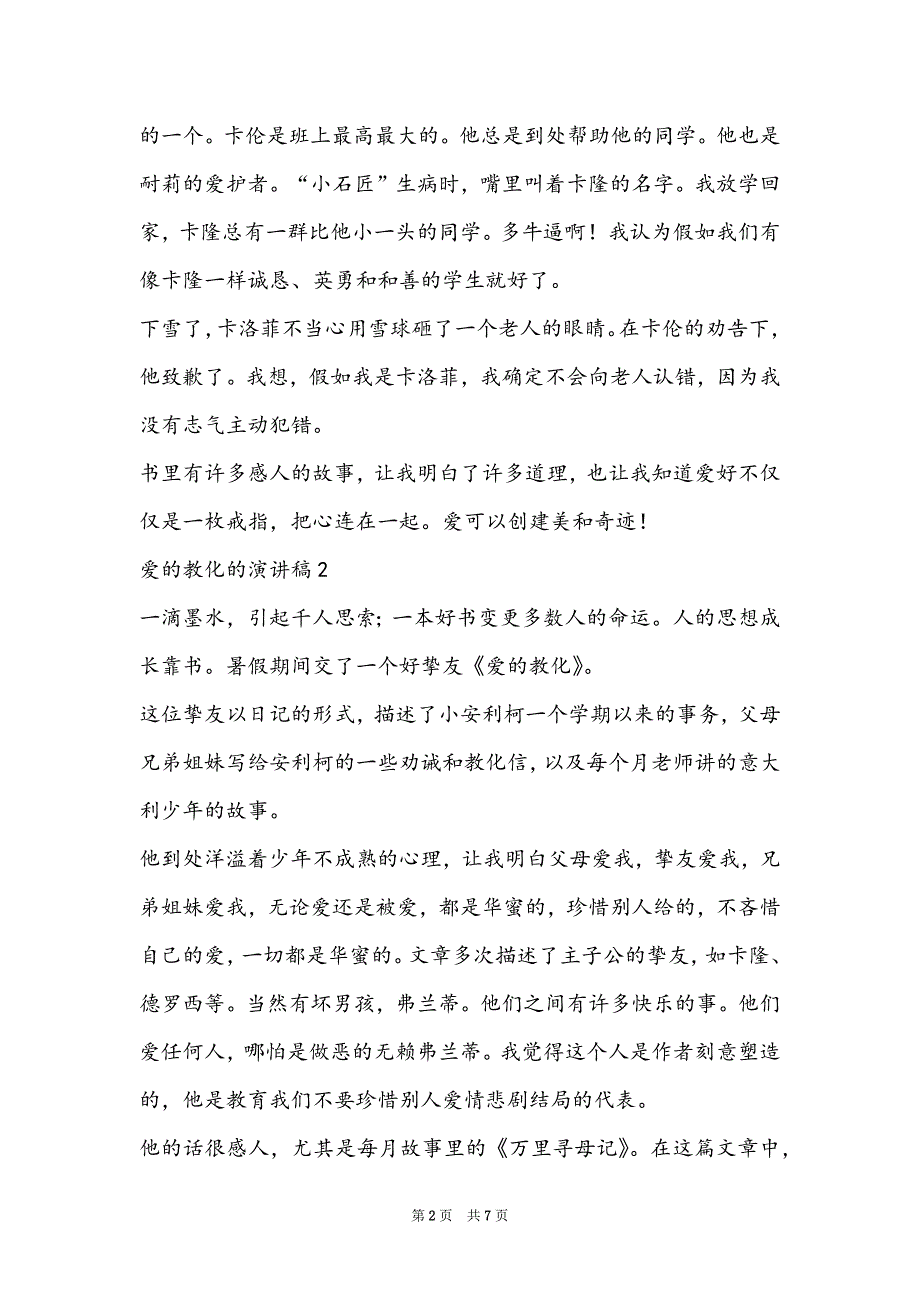 的一个。卡伦是班上最高最大的。他总是到处帮助他的同学。他也是
耐莉的爱护者。“小石匠”生病时，嘴里叫着卡隆的名字。我放学回
家，卡隆总有一群比他小一头的同学。多牛逼啊！我认为假如我们有
像卡隆一样诚恳、英勇和和善的学生就好了。
下雪了，卡洛菲不当心用雪球砸了一个老人的眼睛。在卡伦的劝告下，
他致歉了。我想，假如我是卡洛菲，我确定不会向老人认错，因为我
没有志气主动犯错。
书里有许多感人的故事，让我明白了许多道理，也让我知道爱好不仅
仅是一枚戒指，把心连在一起。爱可以创建美和奇迹！
爱的教化的演讲稿 2
一滴墨水，引起千人思索；一本好书变更多数人的命运。人的思想成
长靠书。暑假期间交了一个好挚友《爱的教化》。
这位挚友以日记的形式，描述了小安利柯一个学期以来的事务，父母
兄弟姐妹写给安利柯的一些劝诫和教化信，以及每个月老师讲的意大
利少年的故事。
他到处洋溢着少年不成熟的心理，让我明白父母爱我，挚友爱我，兄
弟姐妹爱我，无论爱还是被爱，都是华蜜的，珍惜别人给的，不吝惜
自己的爱，一切都是华蜜的。文章多次描述了主子公的挚友，如卡隆、
德罗西等。当然有坏男孩，弗兰蒂。他们之间有许多快乐的事。他们
爱任何人，哪怕是做恶的无赖弗兰蒂。我觉得这个人是作者刻意塑造
的，他是教育我们不要珍惜别人爱情悲剧结局的代表。
他的话很感人，尤其是每月故事里的《万里寻母记》。在这篇文章中，
第 2 页 共 7 页